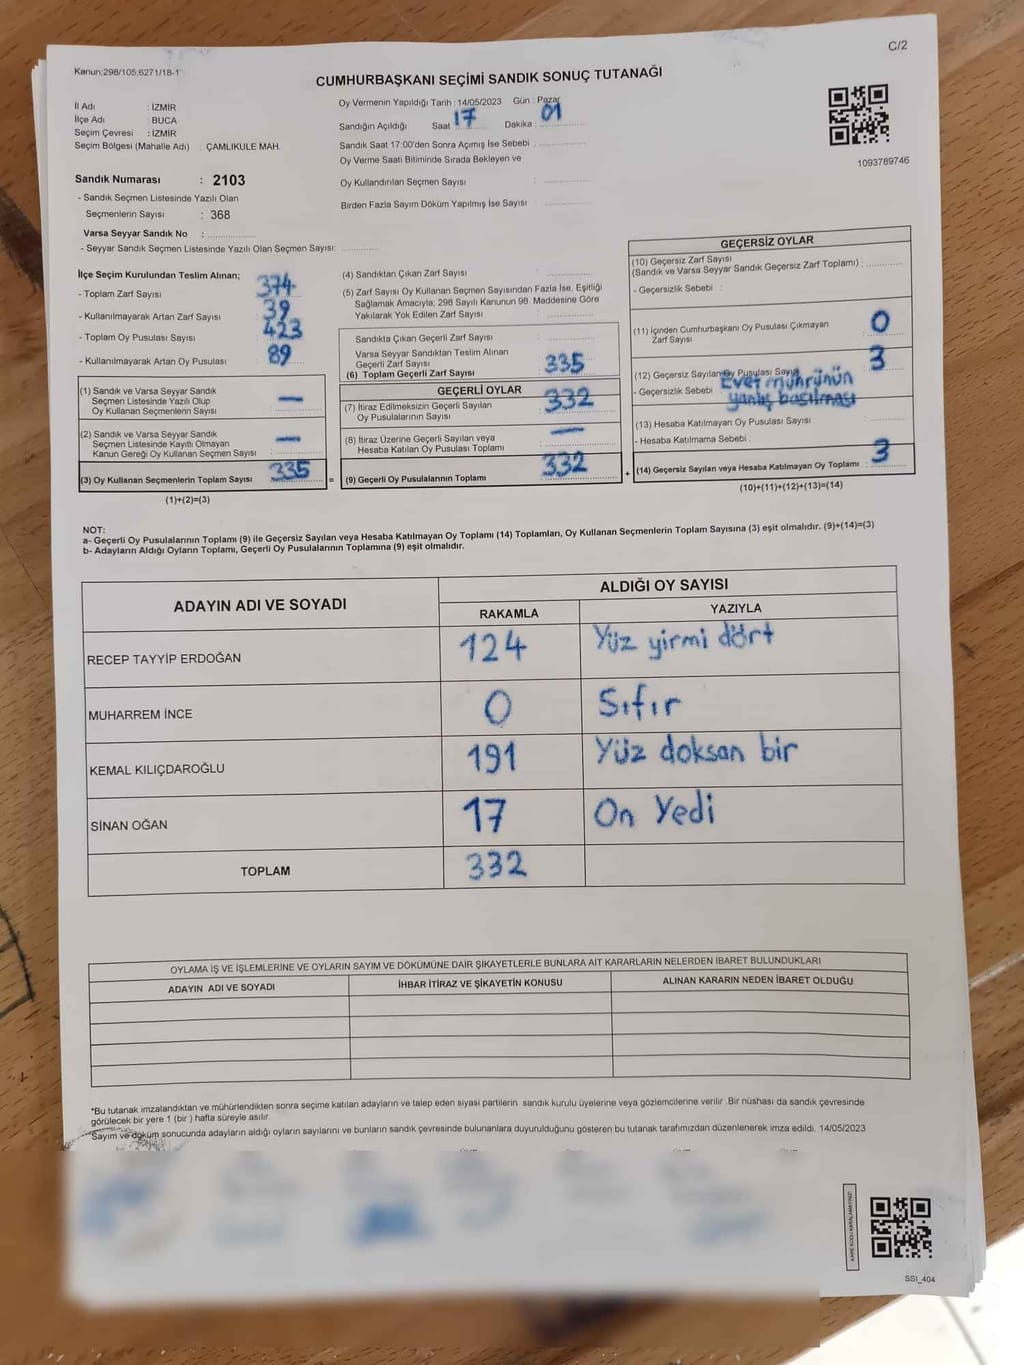 C/2
Kanun;298/105;6271/18-1
CUMHURBAŞKANI SEÇİMİ SANDIK SONUÇ TUTANAĞI
İl Adı : İZMİR
İlçe Adı : BUCA
Seçim Çevresi : İZMİR
Seçim Bölgesi (Mahalle Adı) : ÇAMLIKULE MAH.
Oy Vermenin Yapıldığı Tarih : 14/05/2023 Gün : Pazar
Sandığın Açıldığı Saat 17 Dakika : 01
Sandık Saat 17:00'den Sonra Açımış İse Sebebi :
Oy Verme Saati Bitiminde Sırada Bekleyen ve
Oy Kullandırılan Seçmen Sayısı :
Birden Fazla Sayım Döküm Yapılmış İse Sayısı :
1093789746
Sandık Numarası : 2103
- Sandık Seçmen Listesinde Yazılı Olan
Seçmenlerin Sayısı : 368
Varsa Seyyar Sandık No :
- Seyyar Sandık Seçmen Listesinde Yazılı Olan Seçmen Sayısı:
İlçe Seçim Kurulundan Teslim Alınan;
- Toplam Zarf Sayısı : 374
- Kullanılmayarak Artan Zarf Sayısı : 39
- Toplam Oy Pusulası Sayısı : 423
- Kullanılmayarak Artan Oy Pusulası : 89
(1) Sandık ve Varsa Seyyar Sandık
Seçmen Listesinde Yazılı Olup
Oy Kullanan Seçmenlerin Sayısı : —
(2) Sandık ve Varsa Seyyar Sandık
Seçmen Listesinde Kayıtlı Olmayan
Kanun Gereği Oy Kullanan Seçmen Sayısı : —
(3) Oy Kullanan Seçmenlerin Toplam Sayısı : 335
(1)+(2)=(3)
(4) Sandıktan Çıkan Zarf Sayısı :
(5) Zarf Sayısı Oy Kullanan Seçmen Sayısından Fazla İse, Eşitliği
Sağlamak Amacıyla; 298 Sayılı Kanunun 98. Maddesine Göre
Yakılarak Yok Edilen Zarf Sayısı :
Sandıkta Çıkan Geçerli Zarf Sayısı :
Varsa Seyyar Sandıktan Teslim Alınan
Geçerli Zarf Sayısı :
(6) Toplam Geçerli Zarf Sayısı : 335
GEÇERLİ OYLAR
(7) İtiraz Edilmeksizin Geçerli Sayılan
Oy Pusulalarının Sayısı : 332
(8) İtiraz Üzerine Geçerli Sayılan veya
Hesaba Katılan Oy Pusulası Toplamı : —
= (9) Geçerli Oy Pusulalarının Toplamı : 332
GEÇERSİZ OYLAR
(10) Geçersiz Zarf Sayısı
(Sandık ve Varsa Seyyar Sandık Geçersiz Zarf Toplamı) :
- Geçersizlik Sebebi :
(11) İçinden Cumhurbaşkanı Oy Pusulası Çıkmayan
Zarf Sayısı : 0
(12) Geçersiz Sayılan Oy Pusulası Sayısı : 3
- Geçersizlik Sebebi : Evet mührünün
yanlış basılması
(13) Hesaba Katılmayan Oy Pusulası Sayısı :
- Hesaba Katılmama Sebebi :
+ (14) Geçersiz Sayılan veya Hesaba Katılmayan Oy Toplamı : 3
(10)+(11)+(12)+(13)=(14)
NOT:
a- Geçerli Oy Pusulalarının Toplamı (9) ile Geçersiz Sayılan veya Hesaba Katılmayan Oy Toplamı (14) Toplamları, Oy Kullanan Seçmenlerin Toplam Sayısına (3) eşit olmalıdır. (9)+(14)=(3)
b- Adayların Aldığı Oyların Toplamı, Geçerli Oy Pusulalarının Toplamına (9) eşit olmalıdır.
ADAYIN ADI VE SOYADI ALDIĞI OY SAYISI
RAKAMLA YAZIYLA
RECEP TAYYİP ERDOĞAN 124 Yüz yirmi dört
MUHARREM İNCE 0 Sıfır
KEMAL KILIÇDAROĞLU 191 Yüz doksan bir
SİNAN OĞAN 17 On Yedi
TOPLAM 332
OYLAMA İŞ VE İŞLEMLERİNE VE OYLARIN SAYIM VE DÖKÜMÜNE DAİR ŞİKAYETLERLE BUNLARA AİT KARARLARIN NELERDEN İBARET BULUNDUKLARI
ADAYIN ADI VE SOYADI İHBAR İTİRAZ VE ŞİKAYETİN KONUSU ALINAN KARARIN NEDEN İBARET OLDUĞU
*Bu tutanak imzalandıktan ve mühürlendikten sonra seçime katılan adayların ve talep eden siyasi partilerin sandık kurulu üyelerine veya gözlemcilerine verilir .Bir nüshası da sandık çevresinde
görülecek bir yere 1 (bir ) hafta süreyle asılır.
*Sayım ve döküm sonucunda adayların aldığı oyların sayılarını ve bunların sandık çevresinde bulunanlara duyurulduğunu gösteren bu tutanak tarafımızdan düzenlenerek imza edildi. 14/05/2023
KARE KODU KARALAMAYINIZ!
SSI_404